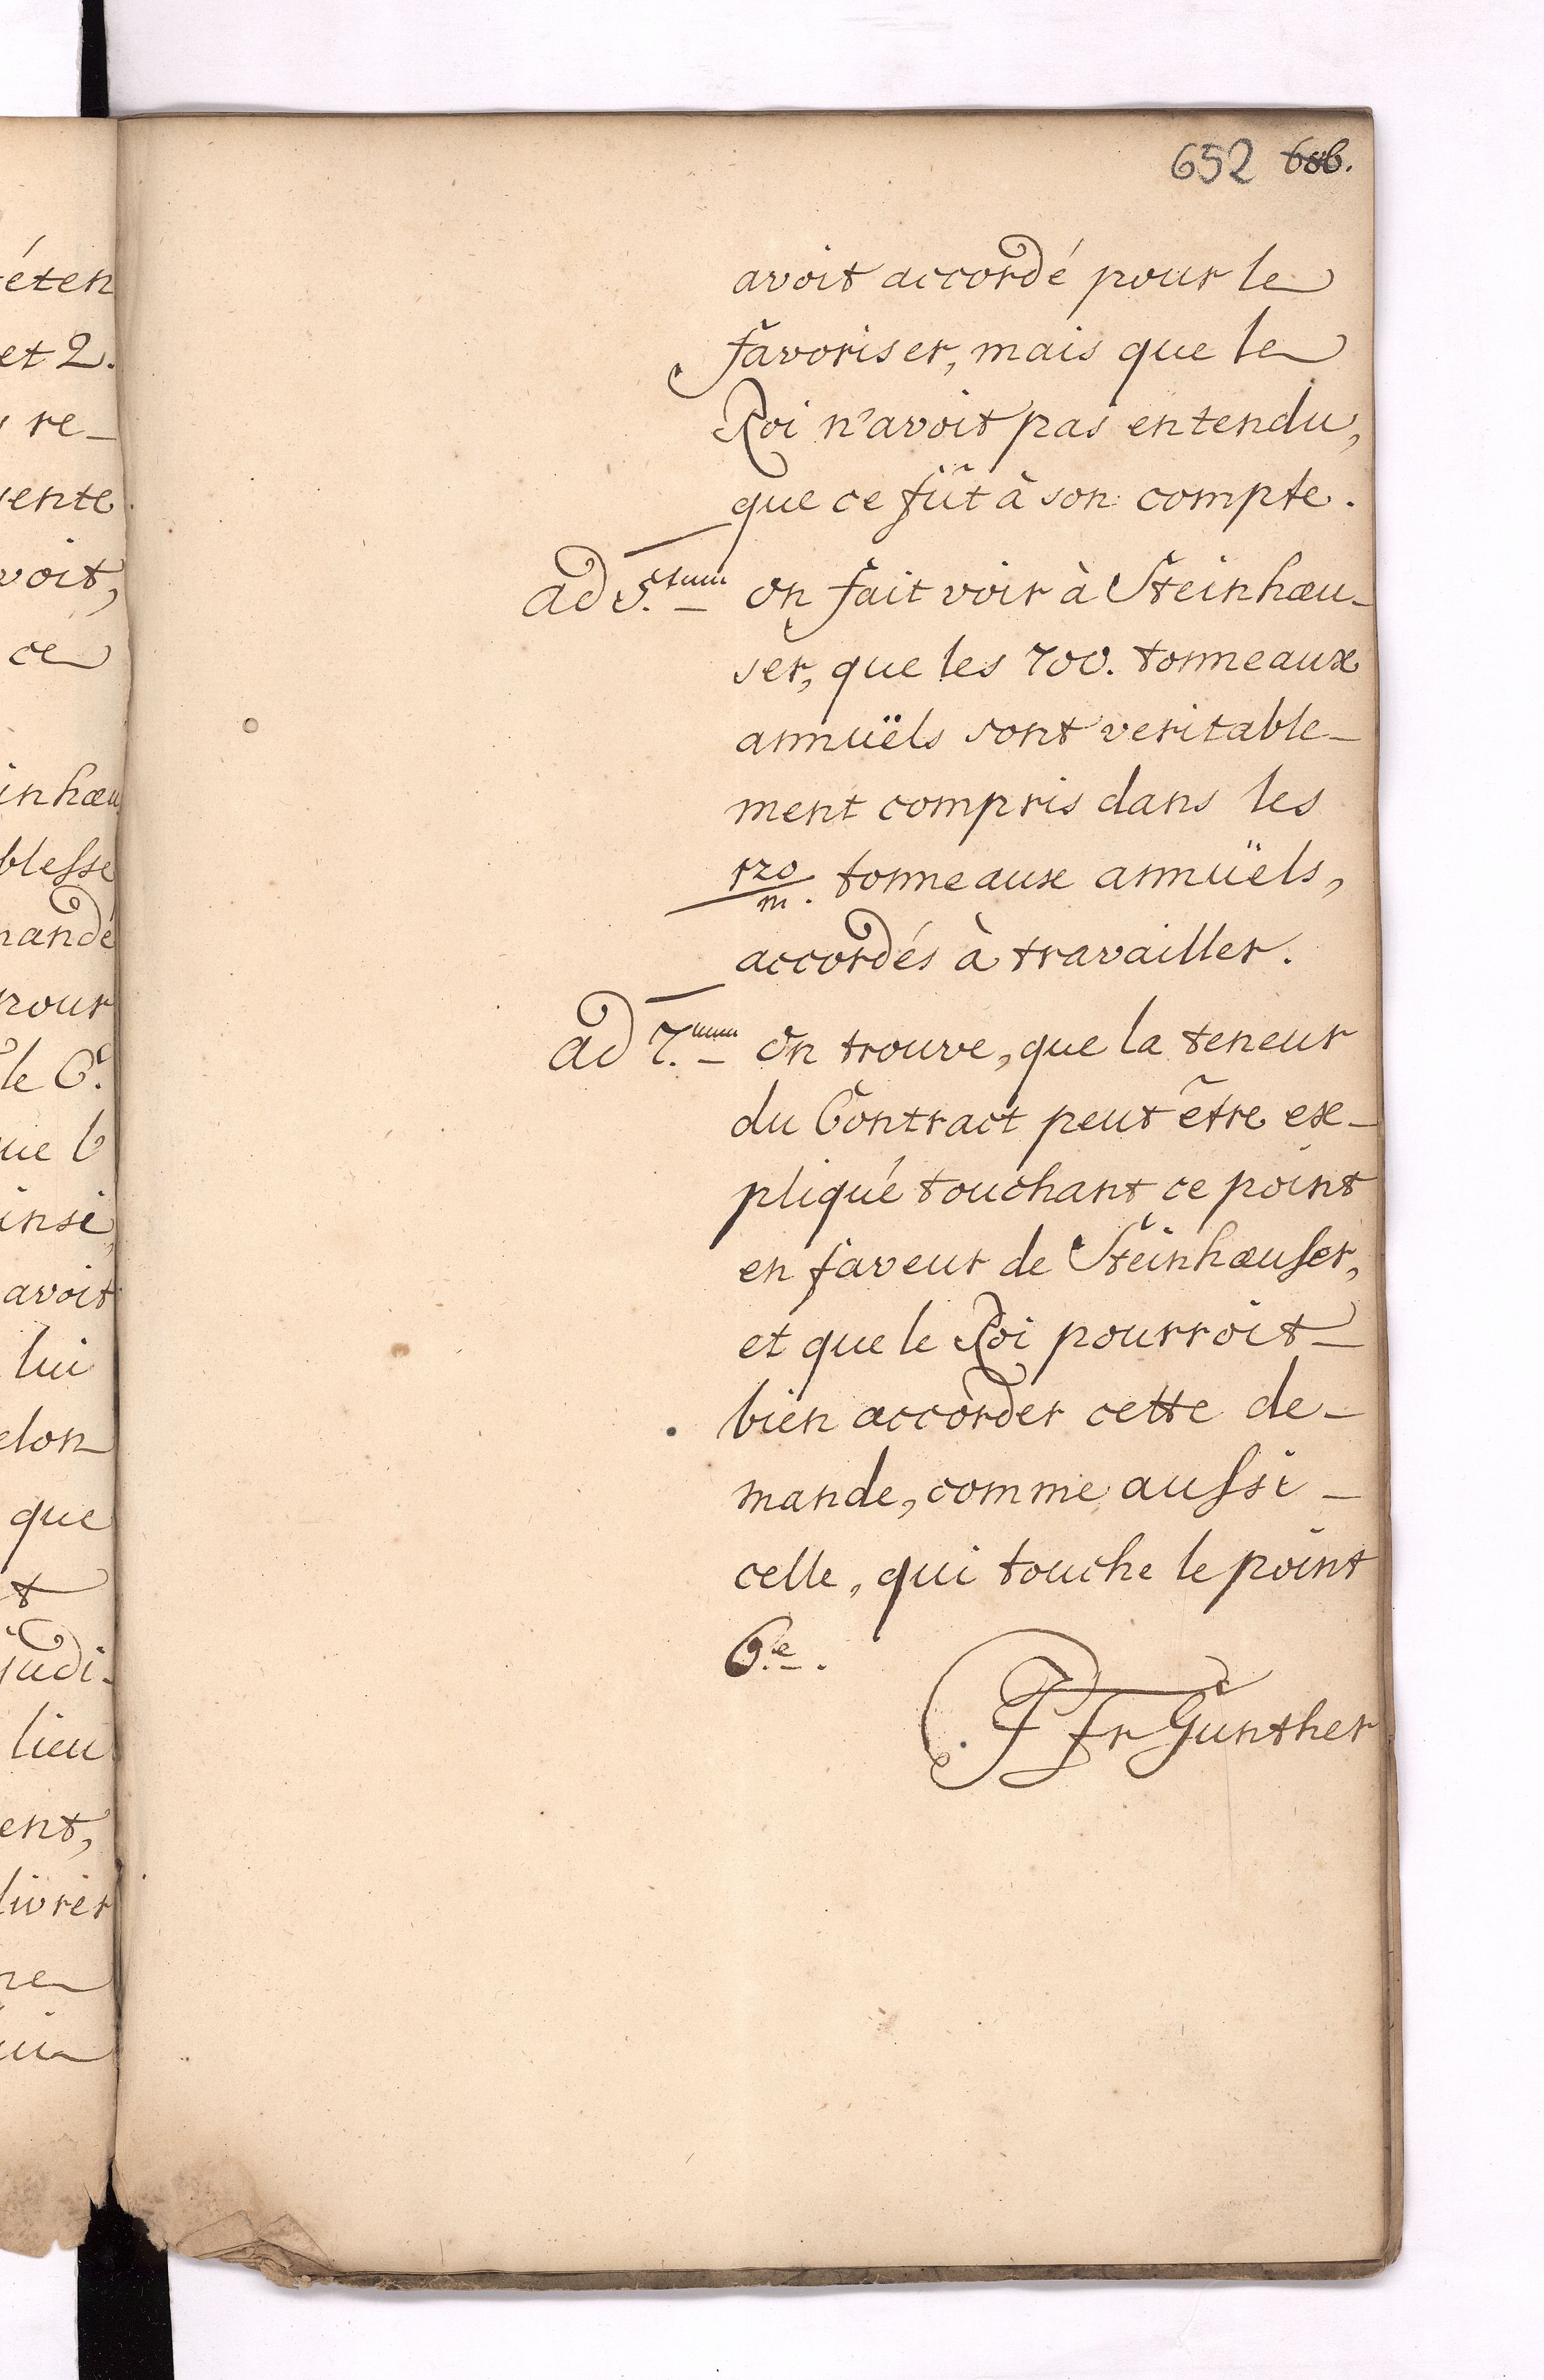 652 686.
avoit accordé pour le
favoriser, mais que le
Roi n'avoit pas entendu,
que ce fût à son compte.
ad 5.tum on fait voir à Steinhœu-
ser, que les 700. tonneaux
annuëls sont veritable-
ment compris dans les
120/m. tonneaux annuëls,
accordés à travailler.
ad 7.mum on trouve, que la teneur
du Contract peut être ex-
pliqué touchant ce point
en faveur de Steinhœuser,
et que le Roi pourroit
bien accorder cette de-
mande, comme aussi
celle, qui touche le point
6.e.
Fr Günther
éten
et 2.
re-
vente
voit,
ce
inhœu
blesse
mandé
pour
le C.
que l
insi,
avoit
lui
elon
que
t
judi-
lieu
ent,
livrer
ne